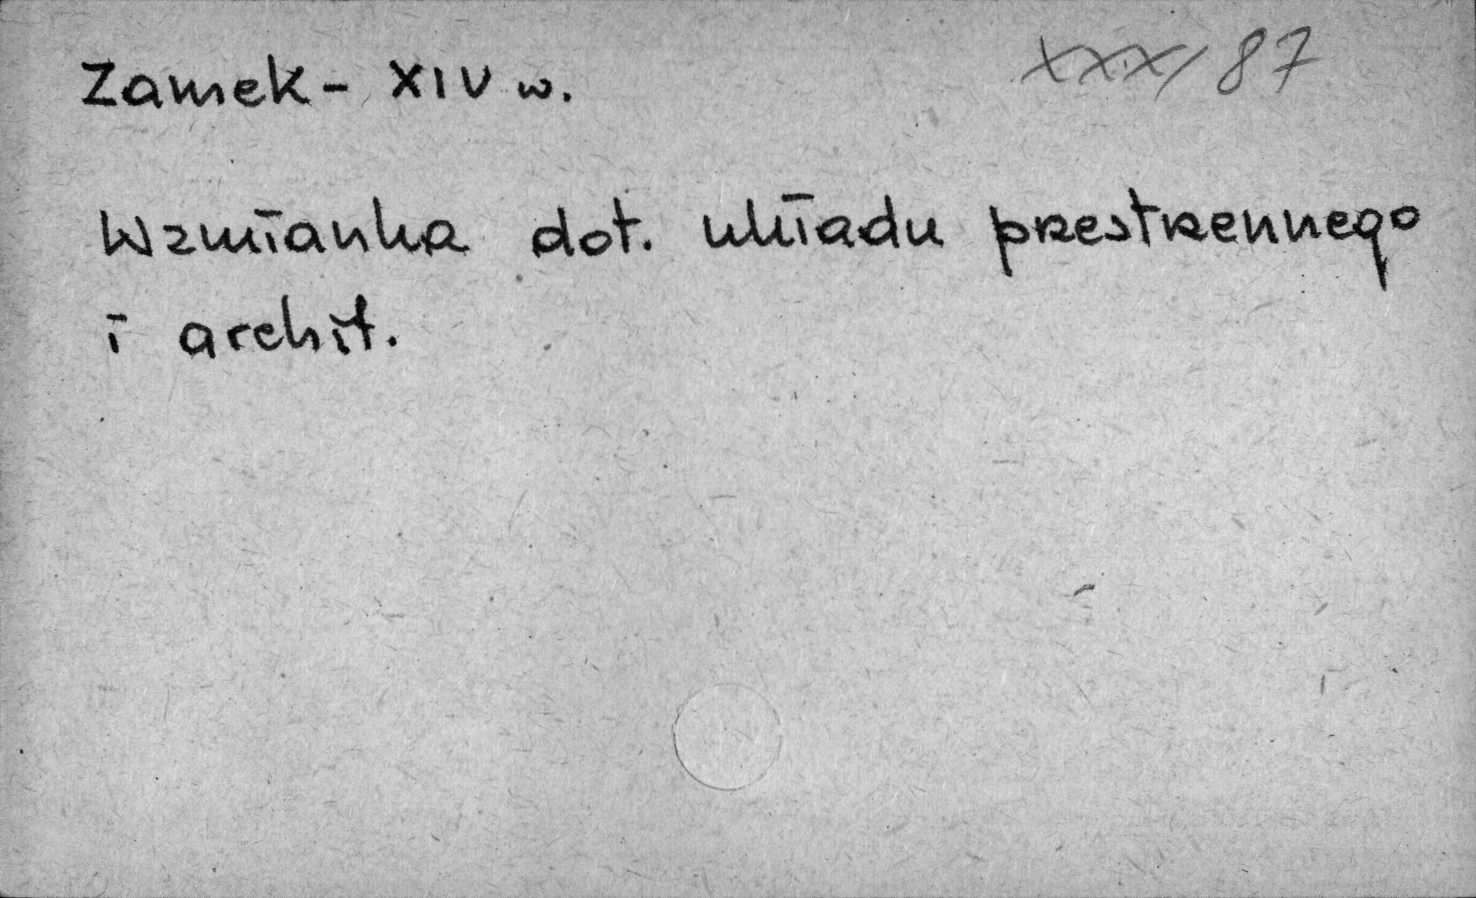 Zamek - XIV w.
XXX/87
Wzmianka dot. układu przestrzennego
i archit.